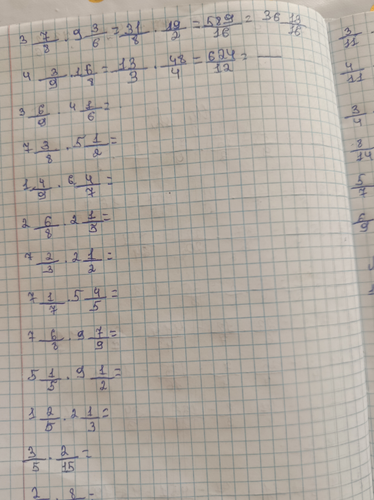 3 7/8 · 9 3/6 = 31/8 · 19/2 = 589/16 = 36 13/16
4 3/9 · 16/8 = 13/3 · 48/4 = 624/12 =
3 6/9 · 4 1/6 =
7 3/8 · 5 1/2 =
1 4/9 · 6 4/7 =
2 6/8 · 2 1/3 =
7 2/3 · 2 1/2 =
7 1/7 · 5 4/5 =
7 6/8 · 9 7/9 =
5 1/5 · 9 1/2 =
1 2/5 · 2 1/3 =
3/5 · 2/15 =
2 · 8 =
3/11
4/11
3/4
8/14
5/7
6/9